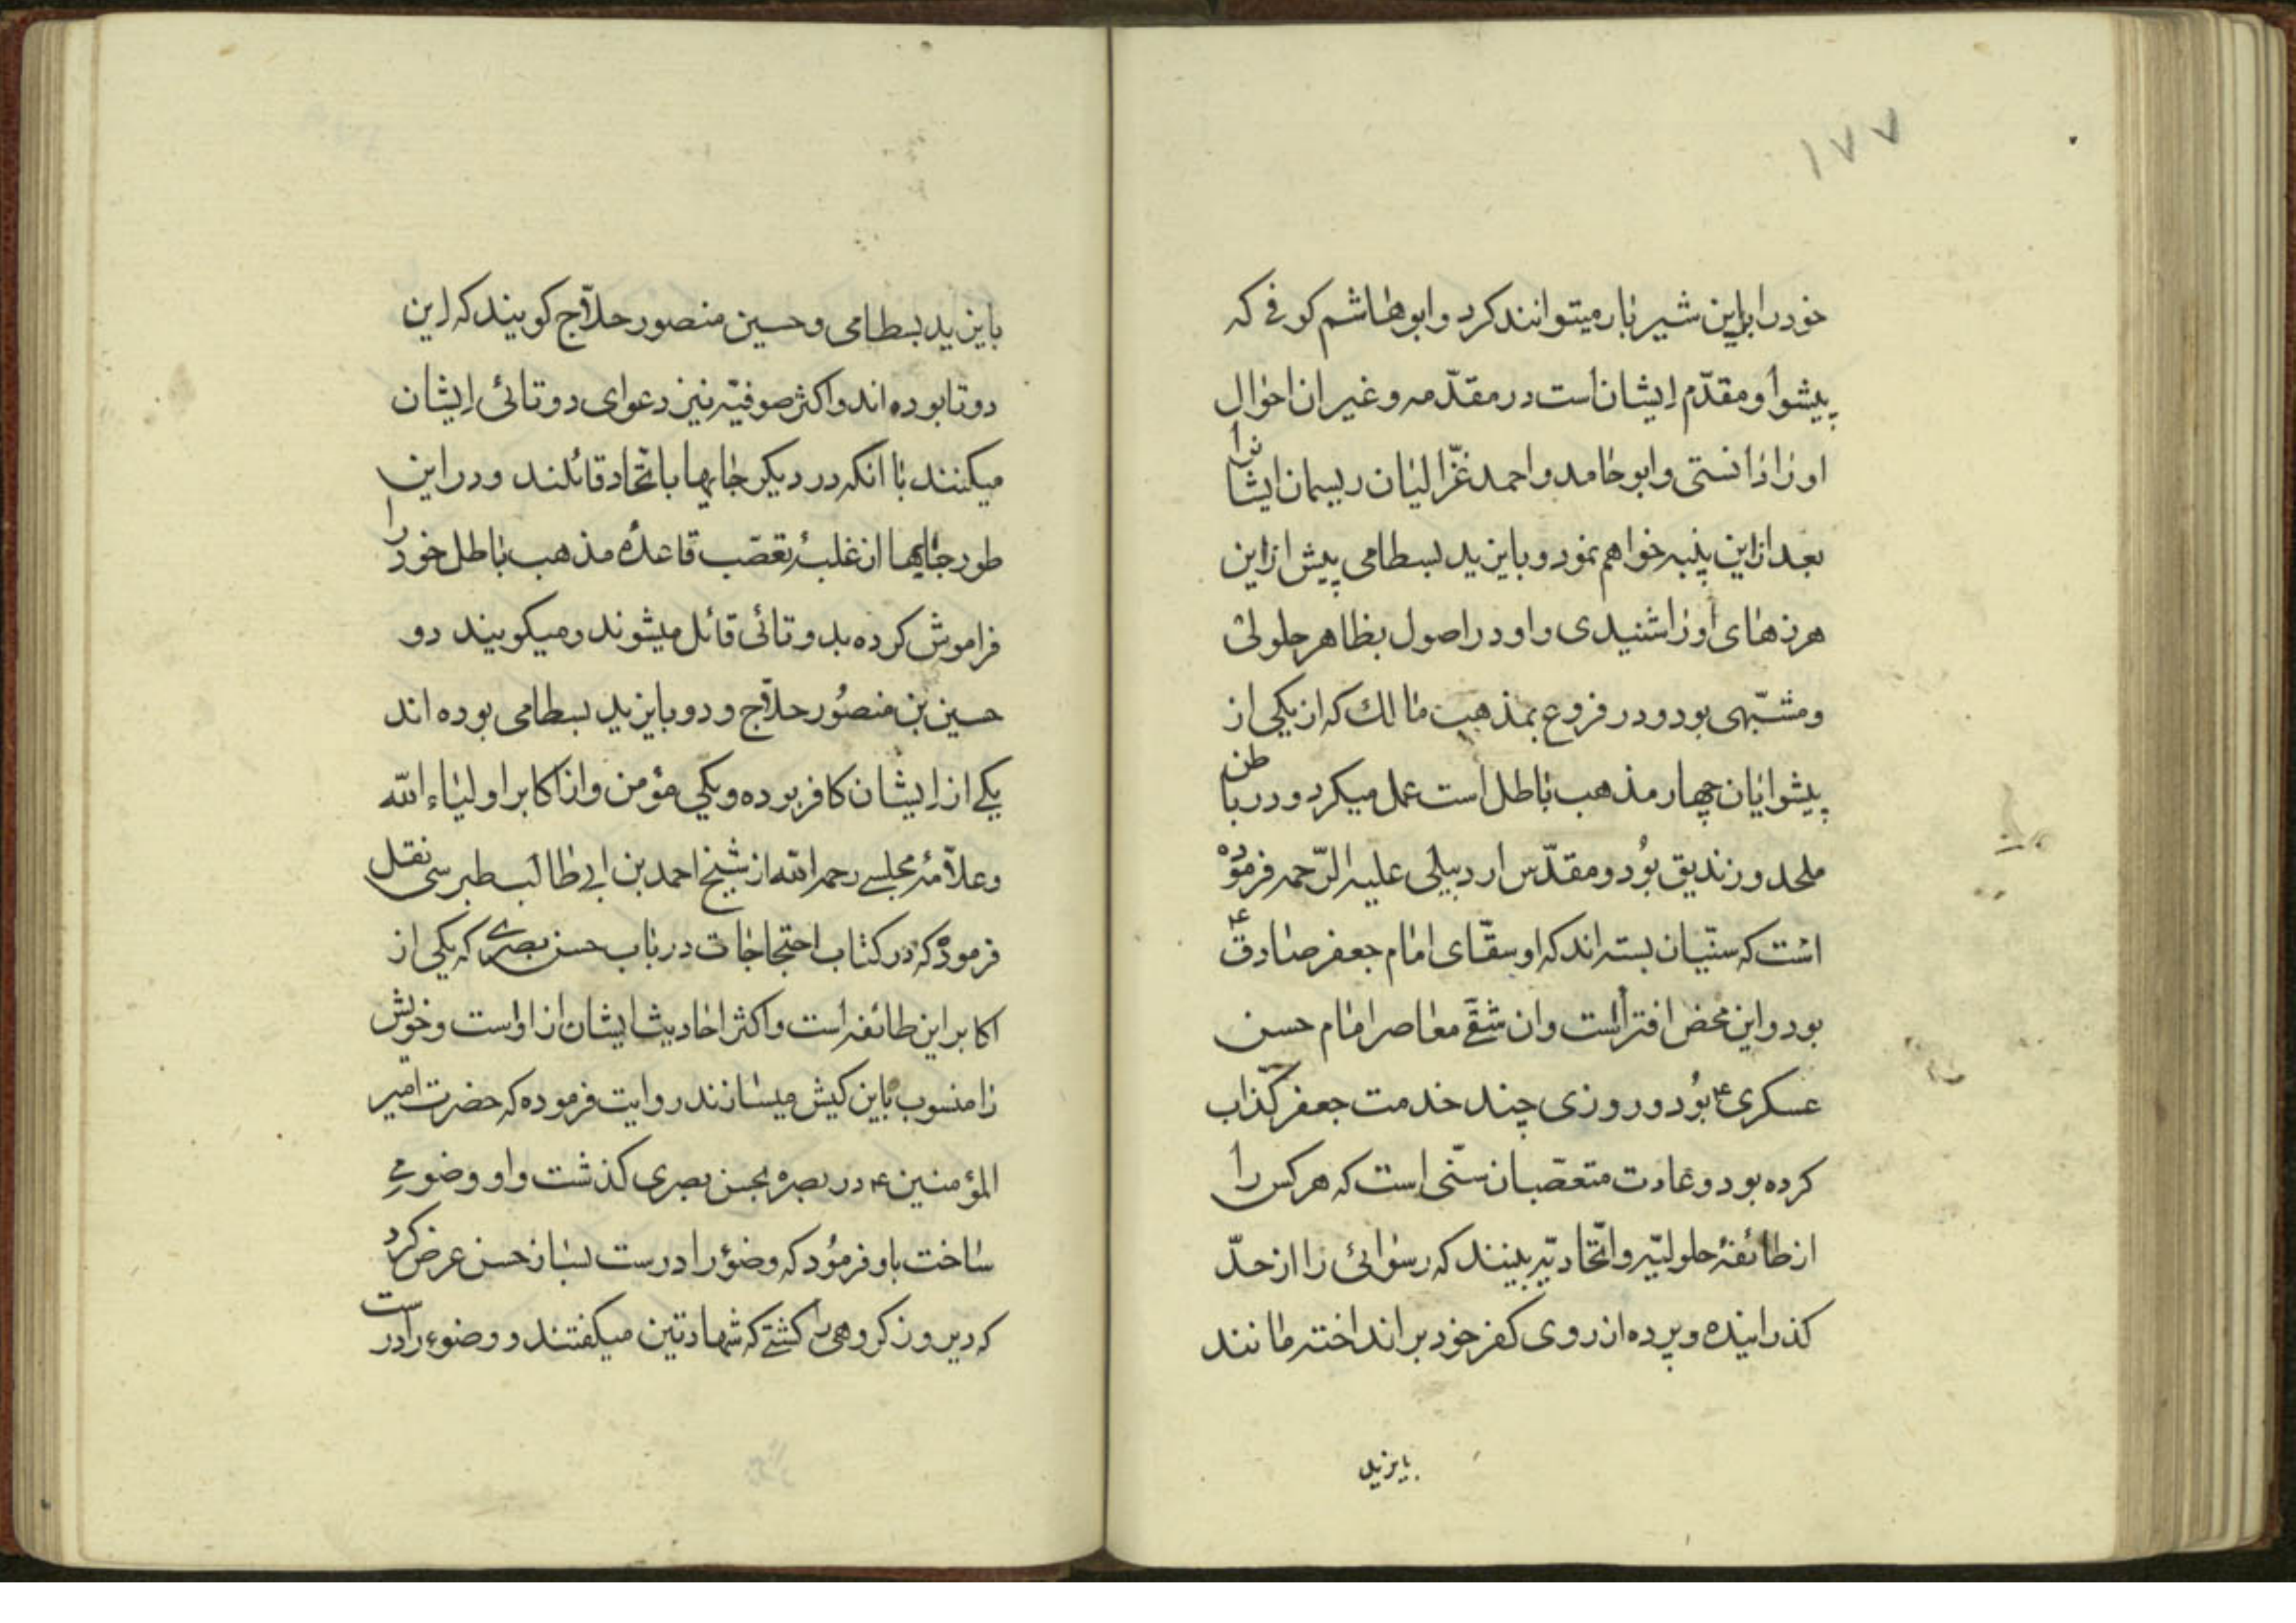 ۱۷۷
خود را باین شیر نا بار میتوانند کرد و ابو هاشم کوفی که
پیشوا و مقدّم ایشان است در مقدّمه و غیر ان احوال
او را دانستی و ابو حامد و احمد غزّالیان ریسمان ایشانرا
بعد ازاین پنبه خواهم نمود و بایزید بسطامی پیش ازاین
هرزهای او را شنیدی و او در اصول بظاهر حلولی
و مشبّهی بود و در فروع بمذهب مالك که از یکی از
پیشوایان چهار مذهب باطل است عمل میکرد و در باطن
ملحد و زندیق بُود و مقدّس اردبیلی علیه الرّحمه فرموده
است که سنّیان بسته اند که او سقّای امام جعفر صادق ع
بود و این محض افتراست و ان شقی معاصر امام حسن
عسکری ع بُود و روزی چند خدمت جعفر کذّاب
کرده بود و عادت متعصّبان سنّی است که هر کس را
از طائفهٔ حلولیّه و اتّحادیّه بینند که رسوائی را از حدّ
کذرانیده و پرده از روی کفر خود بر انداخته مانند
بایزید
بایزید بسطامی و حسین منصور حلاّج کویند که این
دو تا بوده اند و اکثر صوفیّه نیز دعوای دو تائی ایشان
میکنند با انکه در دیکر جایها باتّحاد قائلند و در این
طور جایها از غلبهٔ تعصّب قاعدهٔ مذهب باطل خود را
فراموش کرده بدو تائی قائل میشوند و میکویند دو
حسین بن منصُور حلاّج و دو بایزید بسطامی بوده اند
یکی از ایشان کافر بوده و یکی مؤمن و از اکابر اولیاء الله
و علاّمهٔ مجلسی رحمه الله از شیخ احمد بن ابی طالب طبرسی نقل
فرموده که در کتاب احتجاجات در باب حسن بصری که یکی از
اکابر این طائفه است و اکثر احادیث ایشان از اوست و خویش
را منسوب باین کیش میسازند روایت فرموده که حضرت امیر
المؤمنین ع در بصره بحسن بصری کذشت و او وضو می
ساخت باو فرمُود که وضؤ را درست بساز حسن عرض کرد
که دیروز کروهی را کشتی که شهادتین میکفتند و وضوء را درست